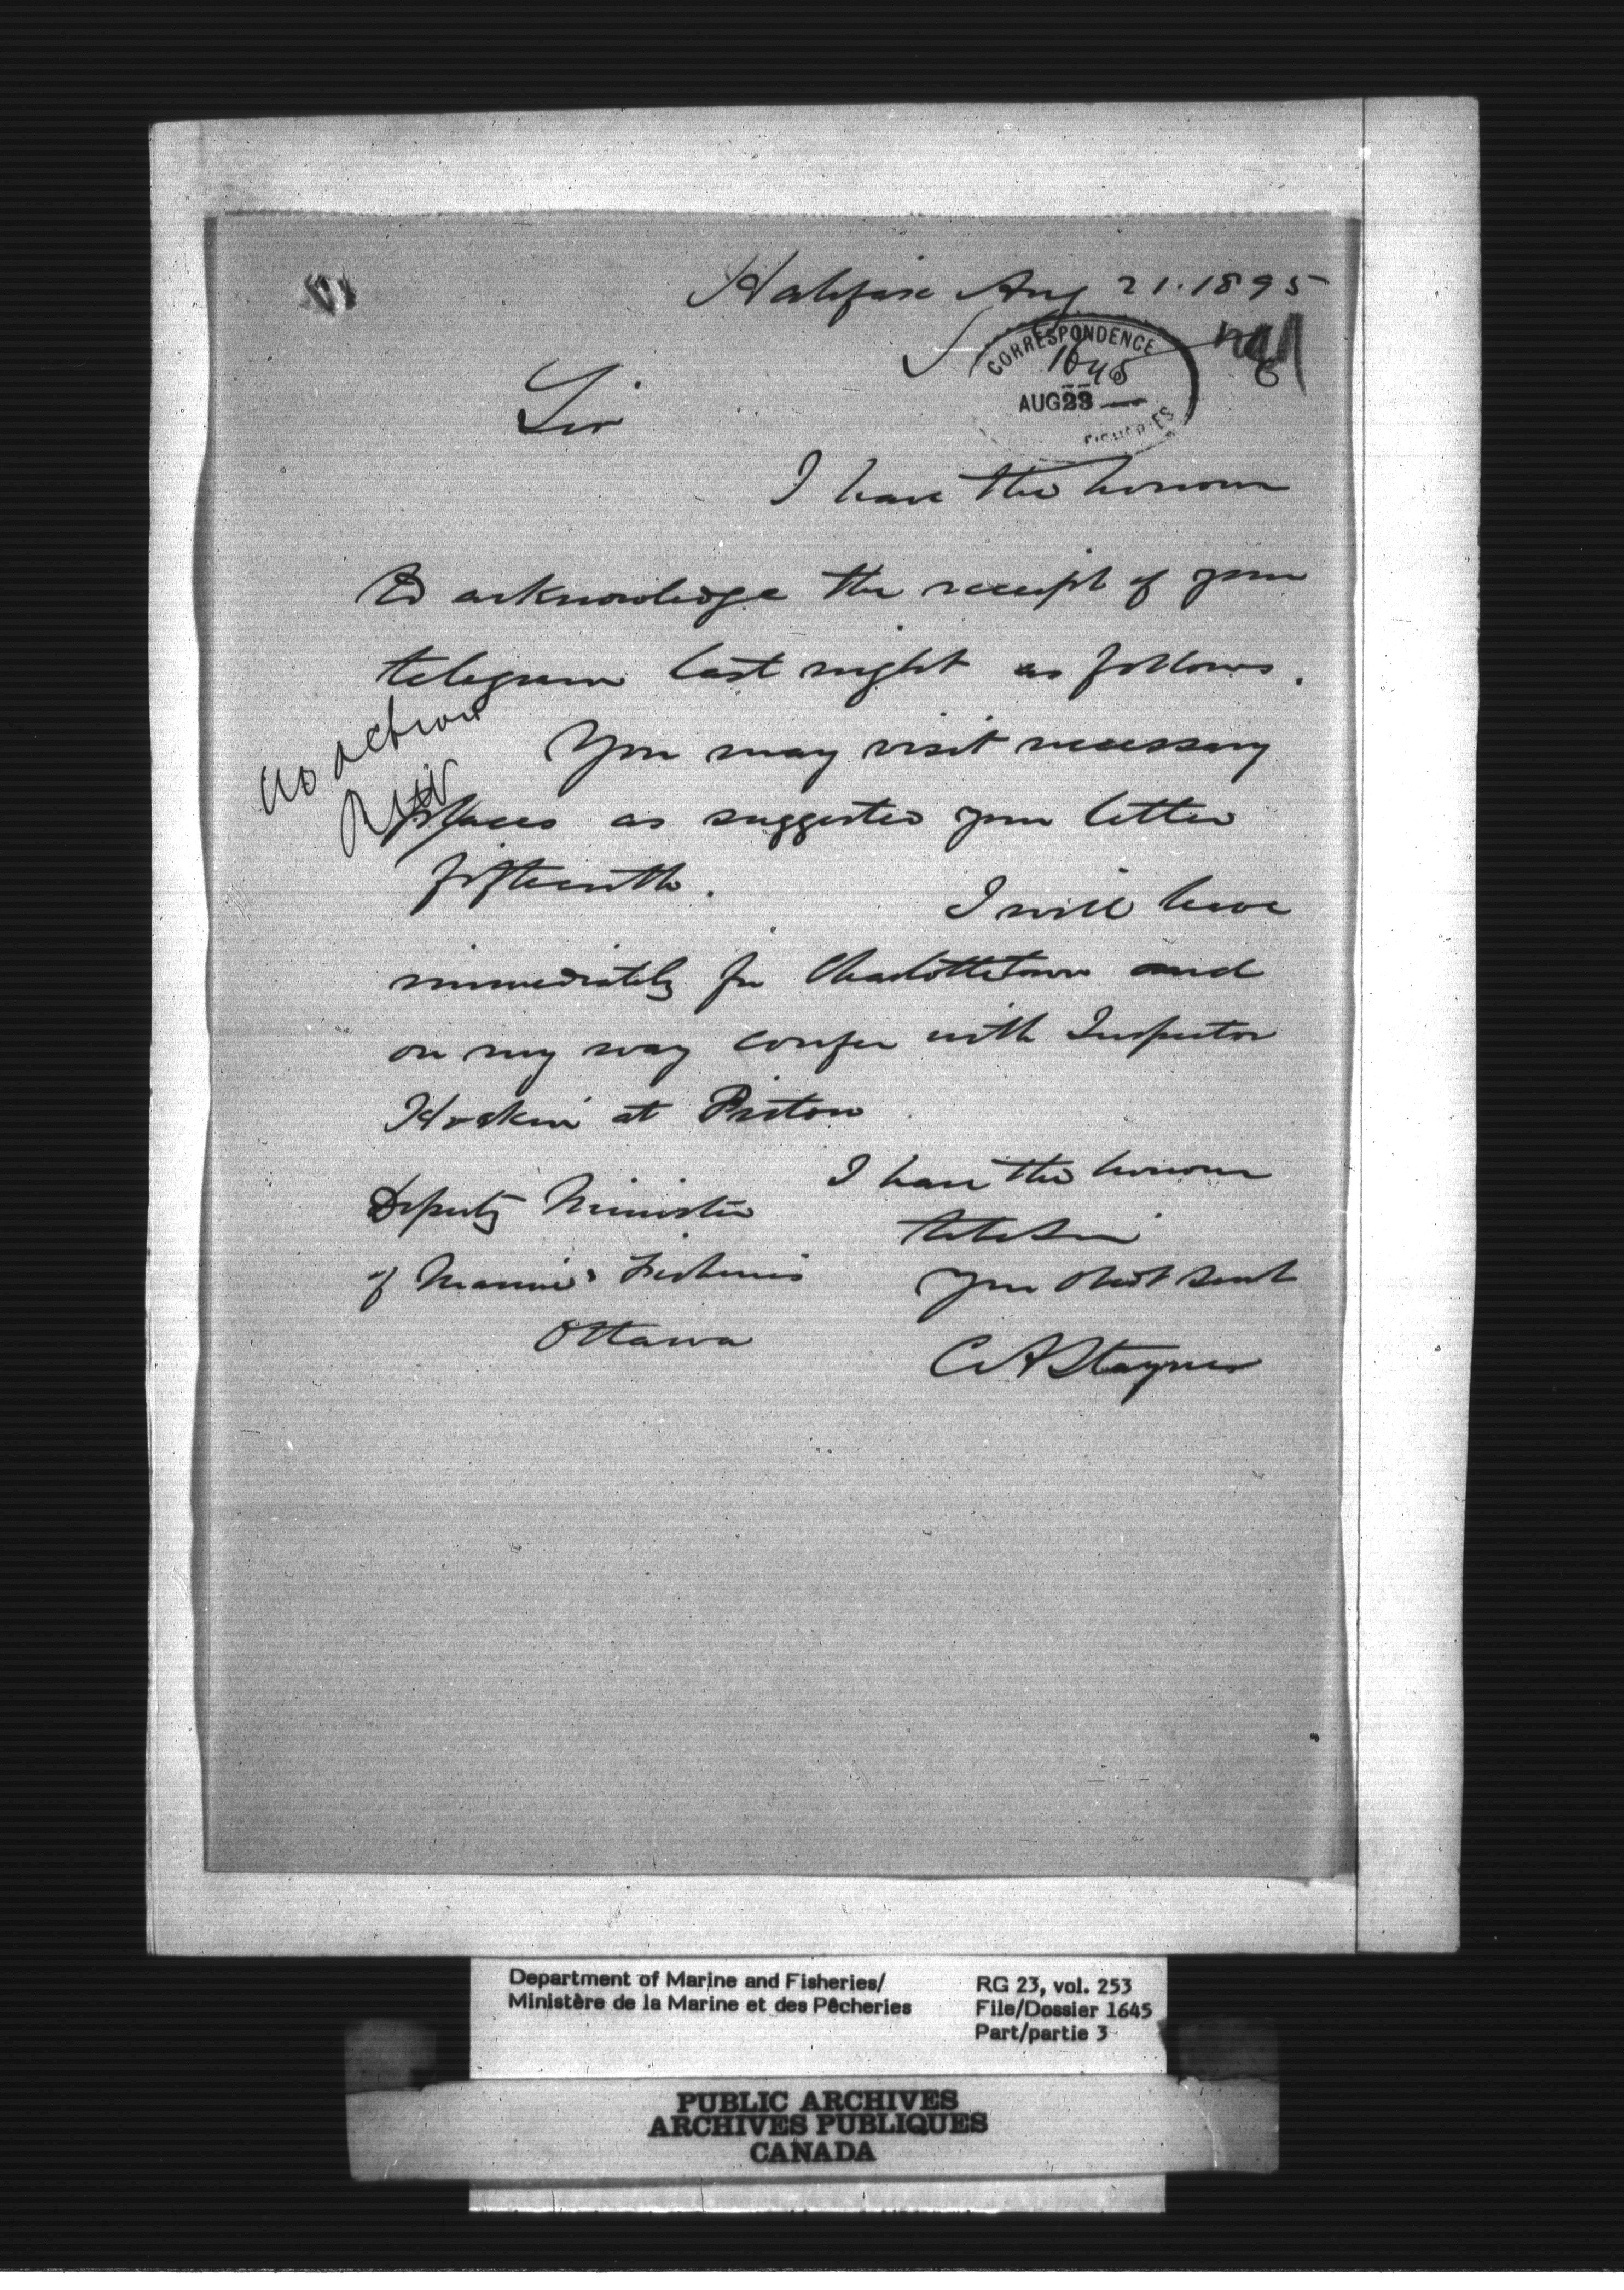 Halifax Aug 21. 1895
CORRESPONDENCE
1645
AUG 23
FISHERIES
Sir
I have the honour
to acknowledge the receipt of your
telegram last night as follows.
no action
You may visit necessary
places as suggested your letter
fifteenth.
I will leave
immediately for Charlottetown and
on my way confer with Inspector
Hockin at Pictou
I have the honour
to be Sir
Your Obdt Servt
C A Stayner
Deputy Minister
of Marine & Fisheries
Ottawa
Department of Marine and Fisheries/
Ministère de la Marine et des Pêcheries
RG 23, vol. 253
File/Dossier 1645
Part/partie 3
PUBLIC ARCHIVES
ARCHIVES PUBLIQUES
CANADA